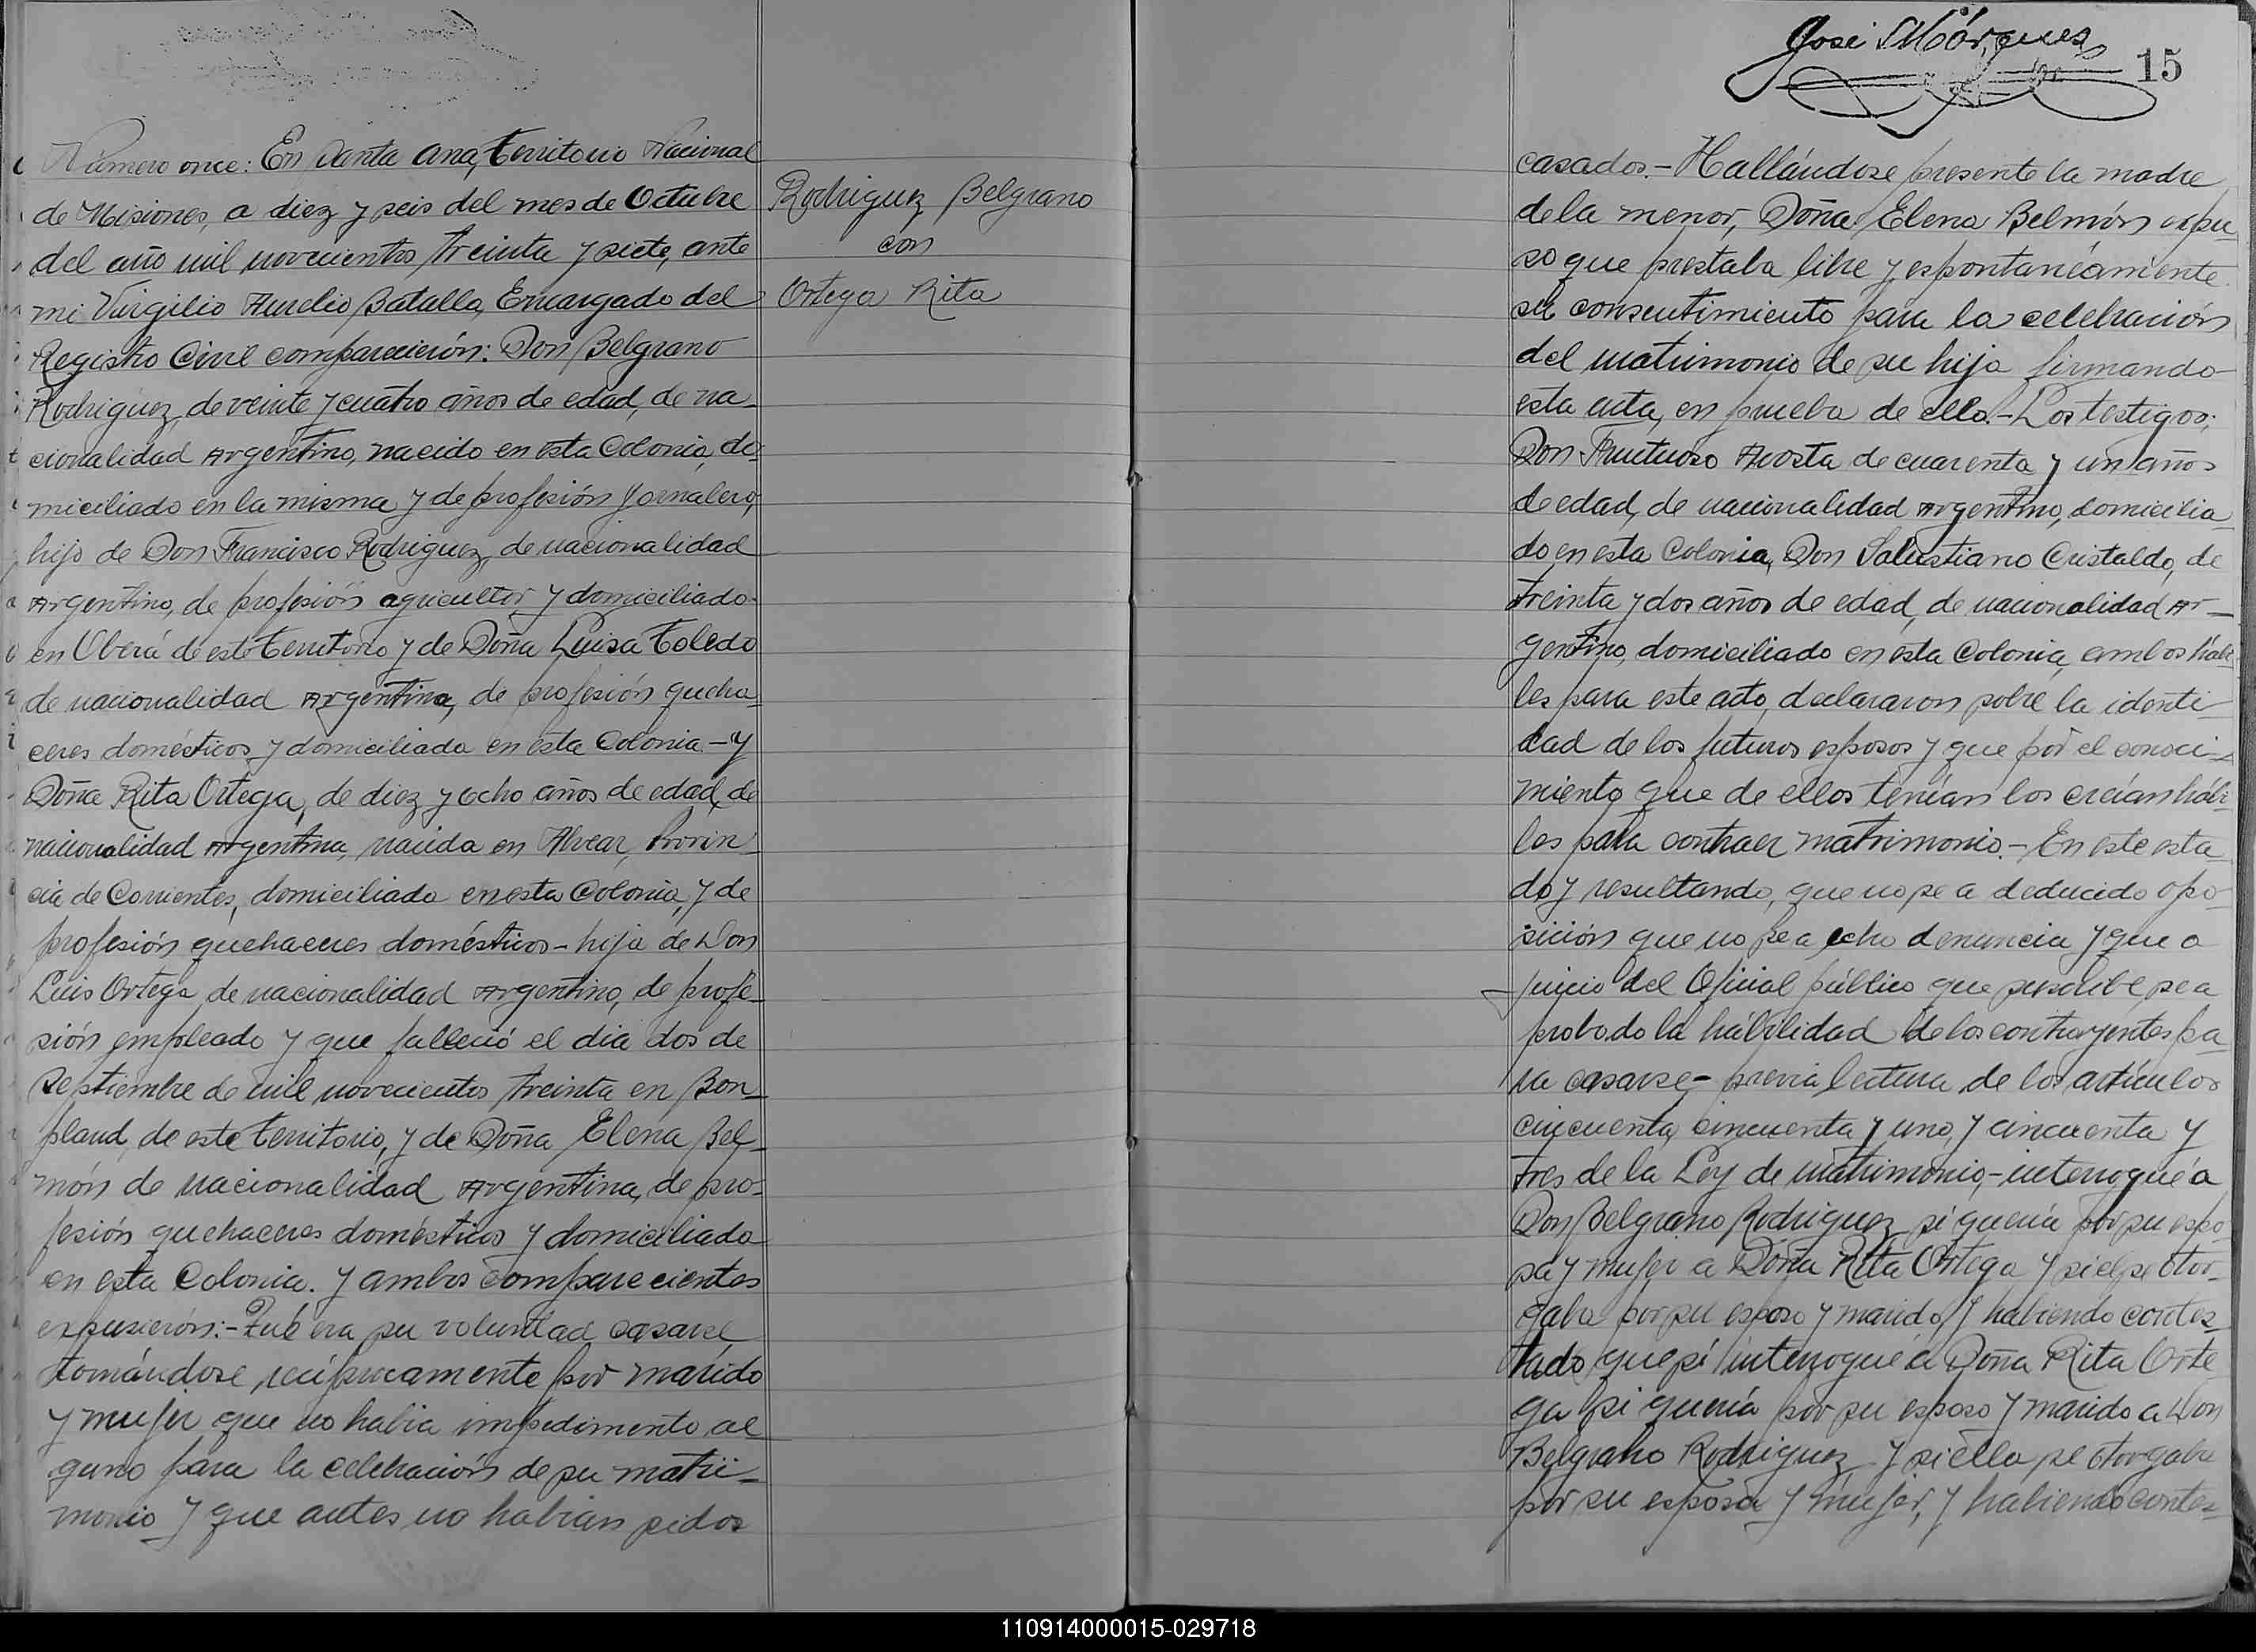 Número once: En Santa Ana, territorio Nacional
de Misiones, a diez y seis del mes de Octubre
del año mil novecientos treinta y siete, ante
mi Virgilio Aurelio Batalla, Encargado del
Registro Civil comparecieron: Don Belgrano
Rodriguez, de veinte y cuatro años de edad, de na-
cionalidad Argentino, nacido en esta Colonia, do-
miciliado en la misma y de profesión Jornalero,
hijo de Don Francisco Rodriguez, de nacionalidad
Argentino, de profesión agricultor y domiciliado
en Oberá de este territorio y de Doña Luisa Toledo
de nacionalidad Argentina, de profesión queha-
ceres domésticos y domiciliada en esta Colonia.- y
Doña Rita Ortega, de diez y ocho años de edad, de
nacionalidad Argentina, nacida en Alvear, Provin-
cia de Corrientes, domiciliada en esta Colonia, y de
profesión quehaceres domésticos - hija de Don
Luis Ortega, de nacionalidad Argentino, de profe-
sión empleado y que falleció el dia dos de
Septiembre de mil novecientos treinta en Bon-
pland, de este territorio, y de Doña Elena Bel-
món de nacionalidad Argentina, de pro-
fesión quehaceres domésticos y domiciliada
en esta Colonia. y ambos comparecientes
expusieron:- Qué era su voluntad casarse,
tomándose recíprocamente por marido
y mujer que no habia impedimento al
guno para la celebración de su matri-
monio y que antes no habian sidos
Rodriguez Belgrano
con
Ortega Rita
José Márquez
15
casados.- Hallándose presente la madre
de la menor, Doña Elena Belmón expu
so que prestaba libre y espontanéamente
su consentimiento para la celebración
del matrimonio de su hija firmando
esta acta, en prueba de ello.- Los testigos;
Don Fructuoso Acosta de cuarenta y un años
de edad, de nacionalidad Argentino, domicilia
do en esta Colonia, Don Salustiano Cristaldo, de
treinta y dos años de edad, de nacionalidad Ar-
gentino, domiciliado en esta Colonia, ambos hábi
les para este acto, declararon sobre la identi-
dad de los futuros esposos y que por el conoci-
miento que de ellos tenían los creían hábi
les para contraer matrimonio.- En este esta
do y resultando, que no se a deducido opo-
sición que no se a echo denuncia y que a
juicio del Oficial público que suscribe se a
probado la hábilidad de los contrayentes pa-
ra casarse- previa lectura de los artículos
cincuenta, cincuenta y uno, y cincuenta y
tres de la Ley de matrimonio,- interrogué a
Don Belgrano Rodriguez si quería por su espo
sa y mujer a Doña Rita Ortega y si el se otor-
gaba por su esposo y marido, y habiendo contes-
tado que sí interrogué a Doña Rita Orte
ga si quería por su esposo y marido a Don
Belgrano Rodriguez y si ella se otorgaba
por su esposa y mujer, y habiendo contes-
110914000015-029718